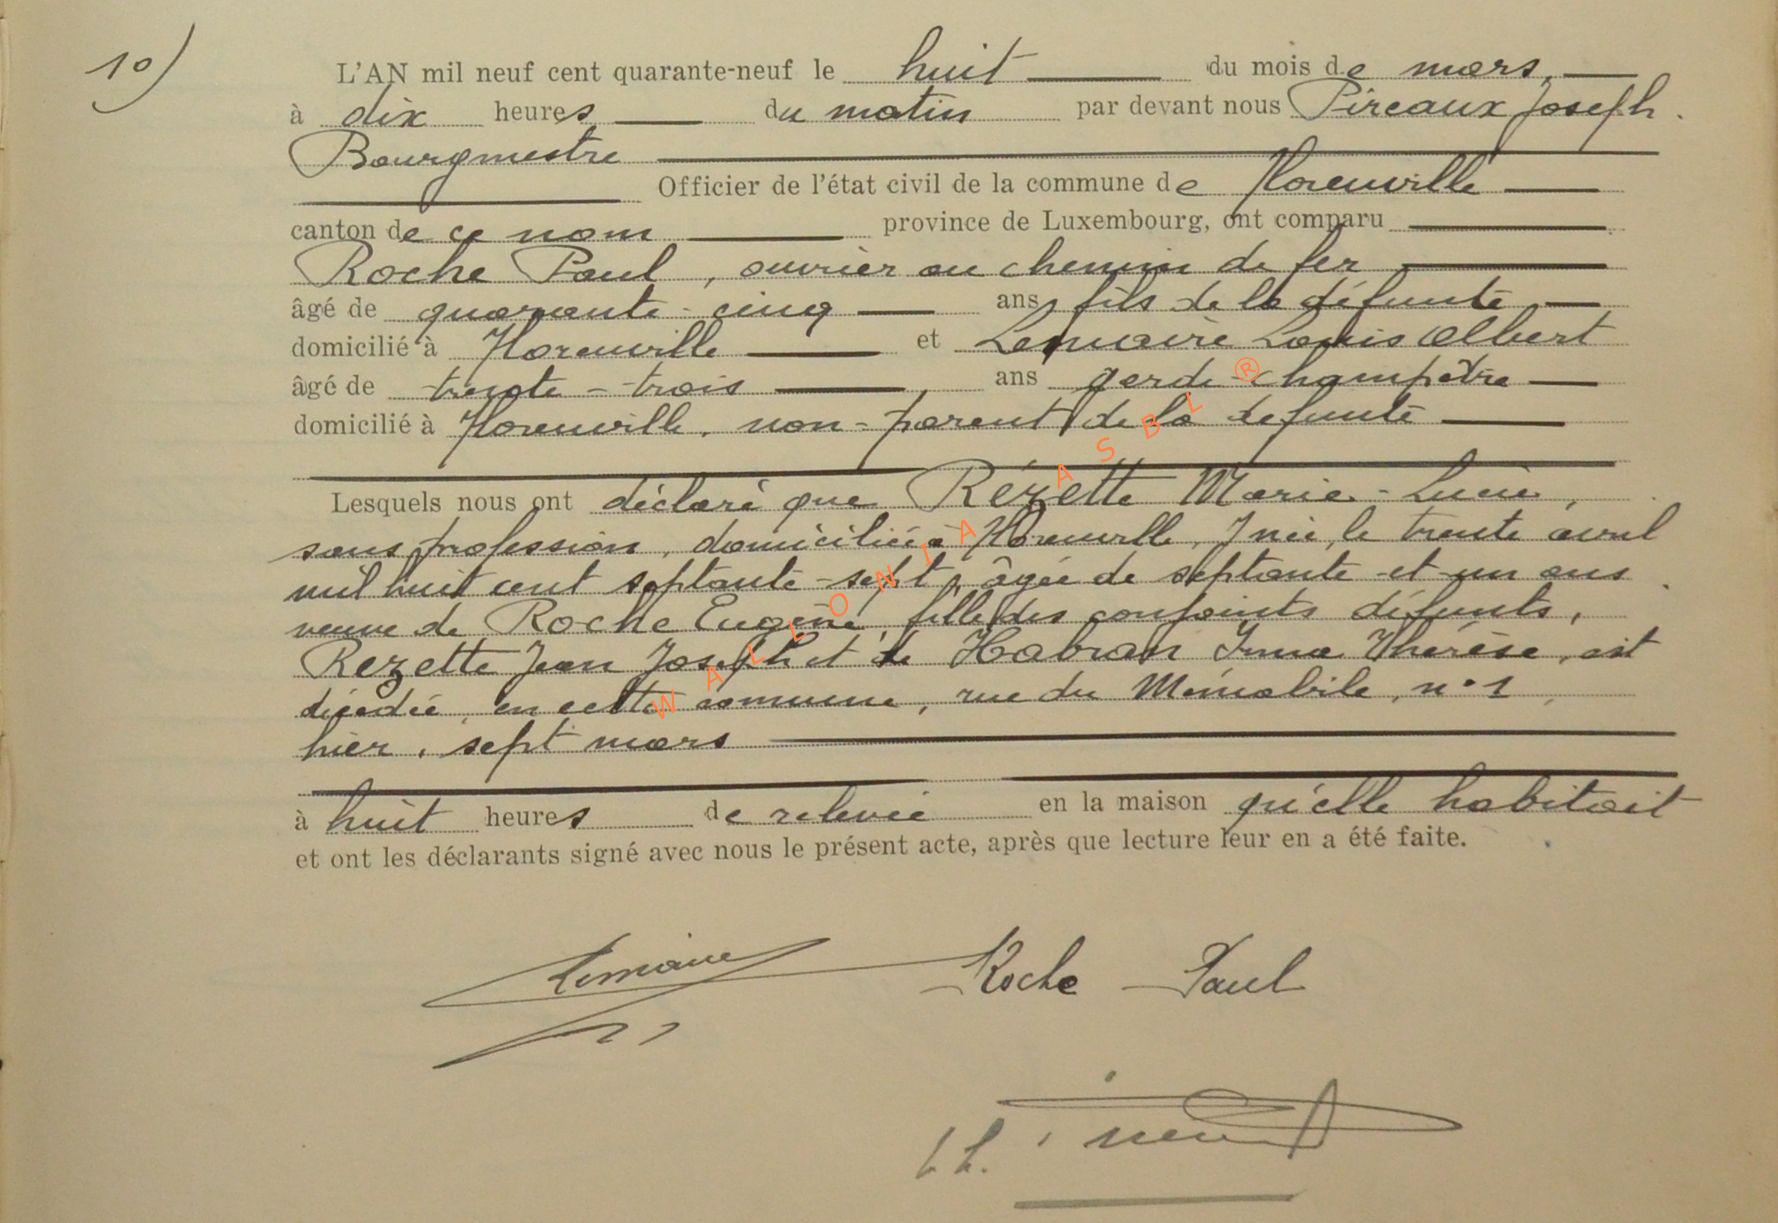 10)
L'AN mil neuf cent quarante-neuf le huit du mois de mars,
à dix heures du matin par devant nous Pireaux Joseph
Bourgmestre
Officier de l'état civil de la commune de Florenville
canton de ce nom province de Luxembourg, ont comparu
Roche Paul, ouvrier au chemin de fer
âgé de quarante-cinq ans, fils de la défunte
domicilié à Florenville et Lemaire Louis Albert
âgé de trente-trois ans garde-champêtre
domicilié à Florenville, non-parent de la défunte
Lesquels nous ont déclaré que Rézette Marie-Lucie,
sans profession, domiciliée à Florenville, y née, le trente avril
mil huit cent septante-sept, âgée de septante-et-un ans
veuve de Roche Eugène, fille des conjoints défunts,
Rezette Jean Joseph et de Habran Anne Thérèse, est
décédée, en cette commune, rue du Mémobile, n° 1,
hier, sept mars
à huit heures de relevée en la maison qu'elle habitait
et ont les déclarants signé avec nous le présent acte, après que lecture leur en a été faite.
Lemaire Roche Paul
WALLONIA ASBL ®